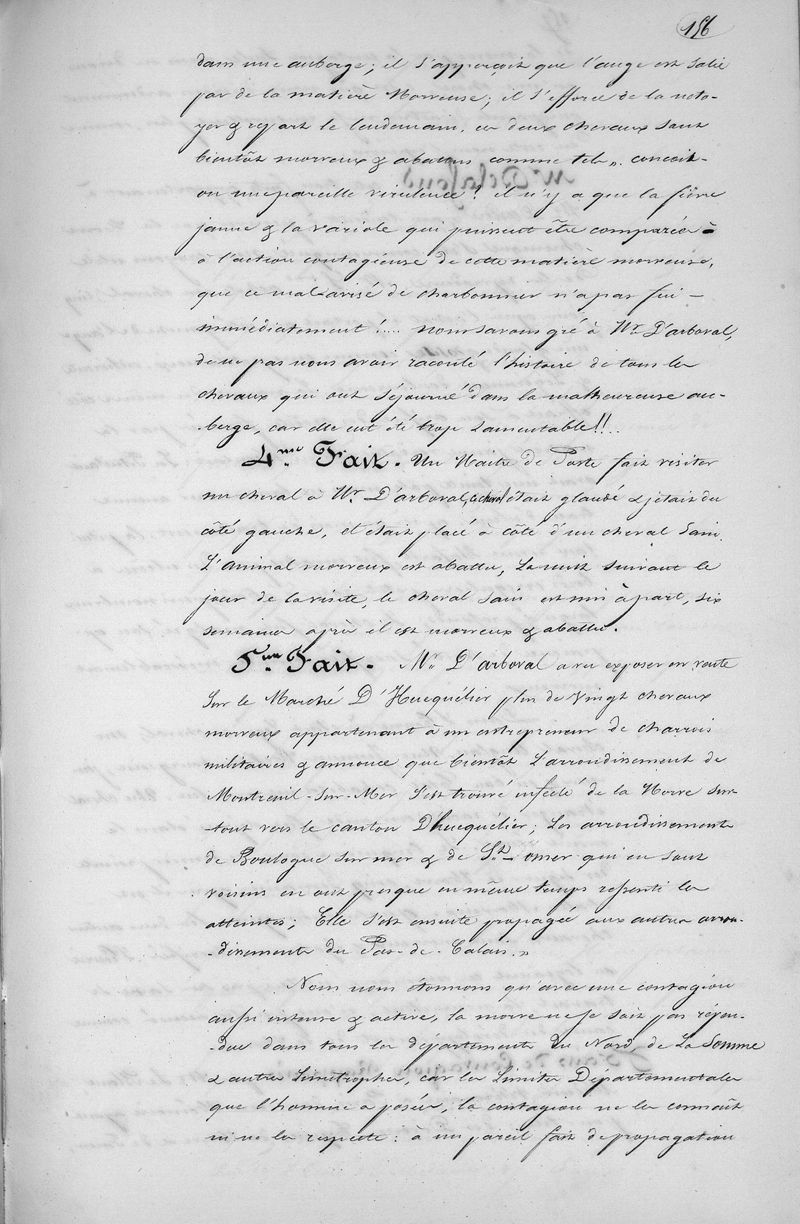 156
dans une auberge; il s'apperçoit que l'auge est salie
par de la matière Morveuse; il s'efforce de la netto-
yer & repart le lendemain, ces deux chevaux sont
bientôt morveux & abattus comme tels ». conçoit-
on une pareille virulence! il n'y a que la fièvre
jaune & la variole qui puissent être comparées à
à l'action contagieuse de cette matière morveuse,
que ce malavisé de charbonnier n'a pas fui -
immédiatement!.... Nous savons gré à Mr. D'arboval,
de ne pas nous avoir raconté l'histoire de tous les
chevaux qui ont séjourné dans la malheureuse au-
-berge, car elle eut été trop Lamentable!!..
4.me Fait. Un Maître de Poste fait visiter
un cheval à Mr D'arboval, ce cheval était glandé & jetait du
côté gauche, et était placé à côté d'un cheval Sain.
L'animal morveux est abattu, La nuit suivant le
jour de la visite, le cheval sain est mis à part, six
semaines après il est morveux & abattu.
5.me Fait. Mr. D'arboval a vu exposer en vente
Sur le Marché D'Hucquélier plus de Vingt chevaux
morveux appartenant à un entrepreneur de charrois
militaires & annonce que bientôt L'arrondissement de
Montreuil-sur-Mer s'est trouvé infecté de la Morve sur-
-tout vers le canton D'hucquélier; Les arrondissements
de Boulogne sur mer & de St. omer qui en sont
voisins en ont presque en même temps ressenti les
atteintes; Elle s'est ensuite propagée aux autres arron-
-dissements du Pas-de-Calais. »
Nous nous étonnons qu'avec une contagion
aussi intense & active, la morve ne se soit pas répan-
-due dans tous les départements du Nord, de La Somme
& autres Limitrophes, car les Limites Départementales
que l'homme a posées, la contagion ne les connaît
ni ne les respecte: à un pareil fait de propagation